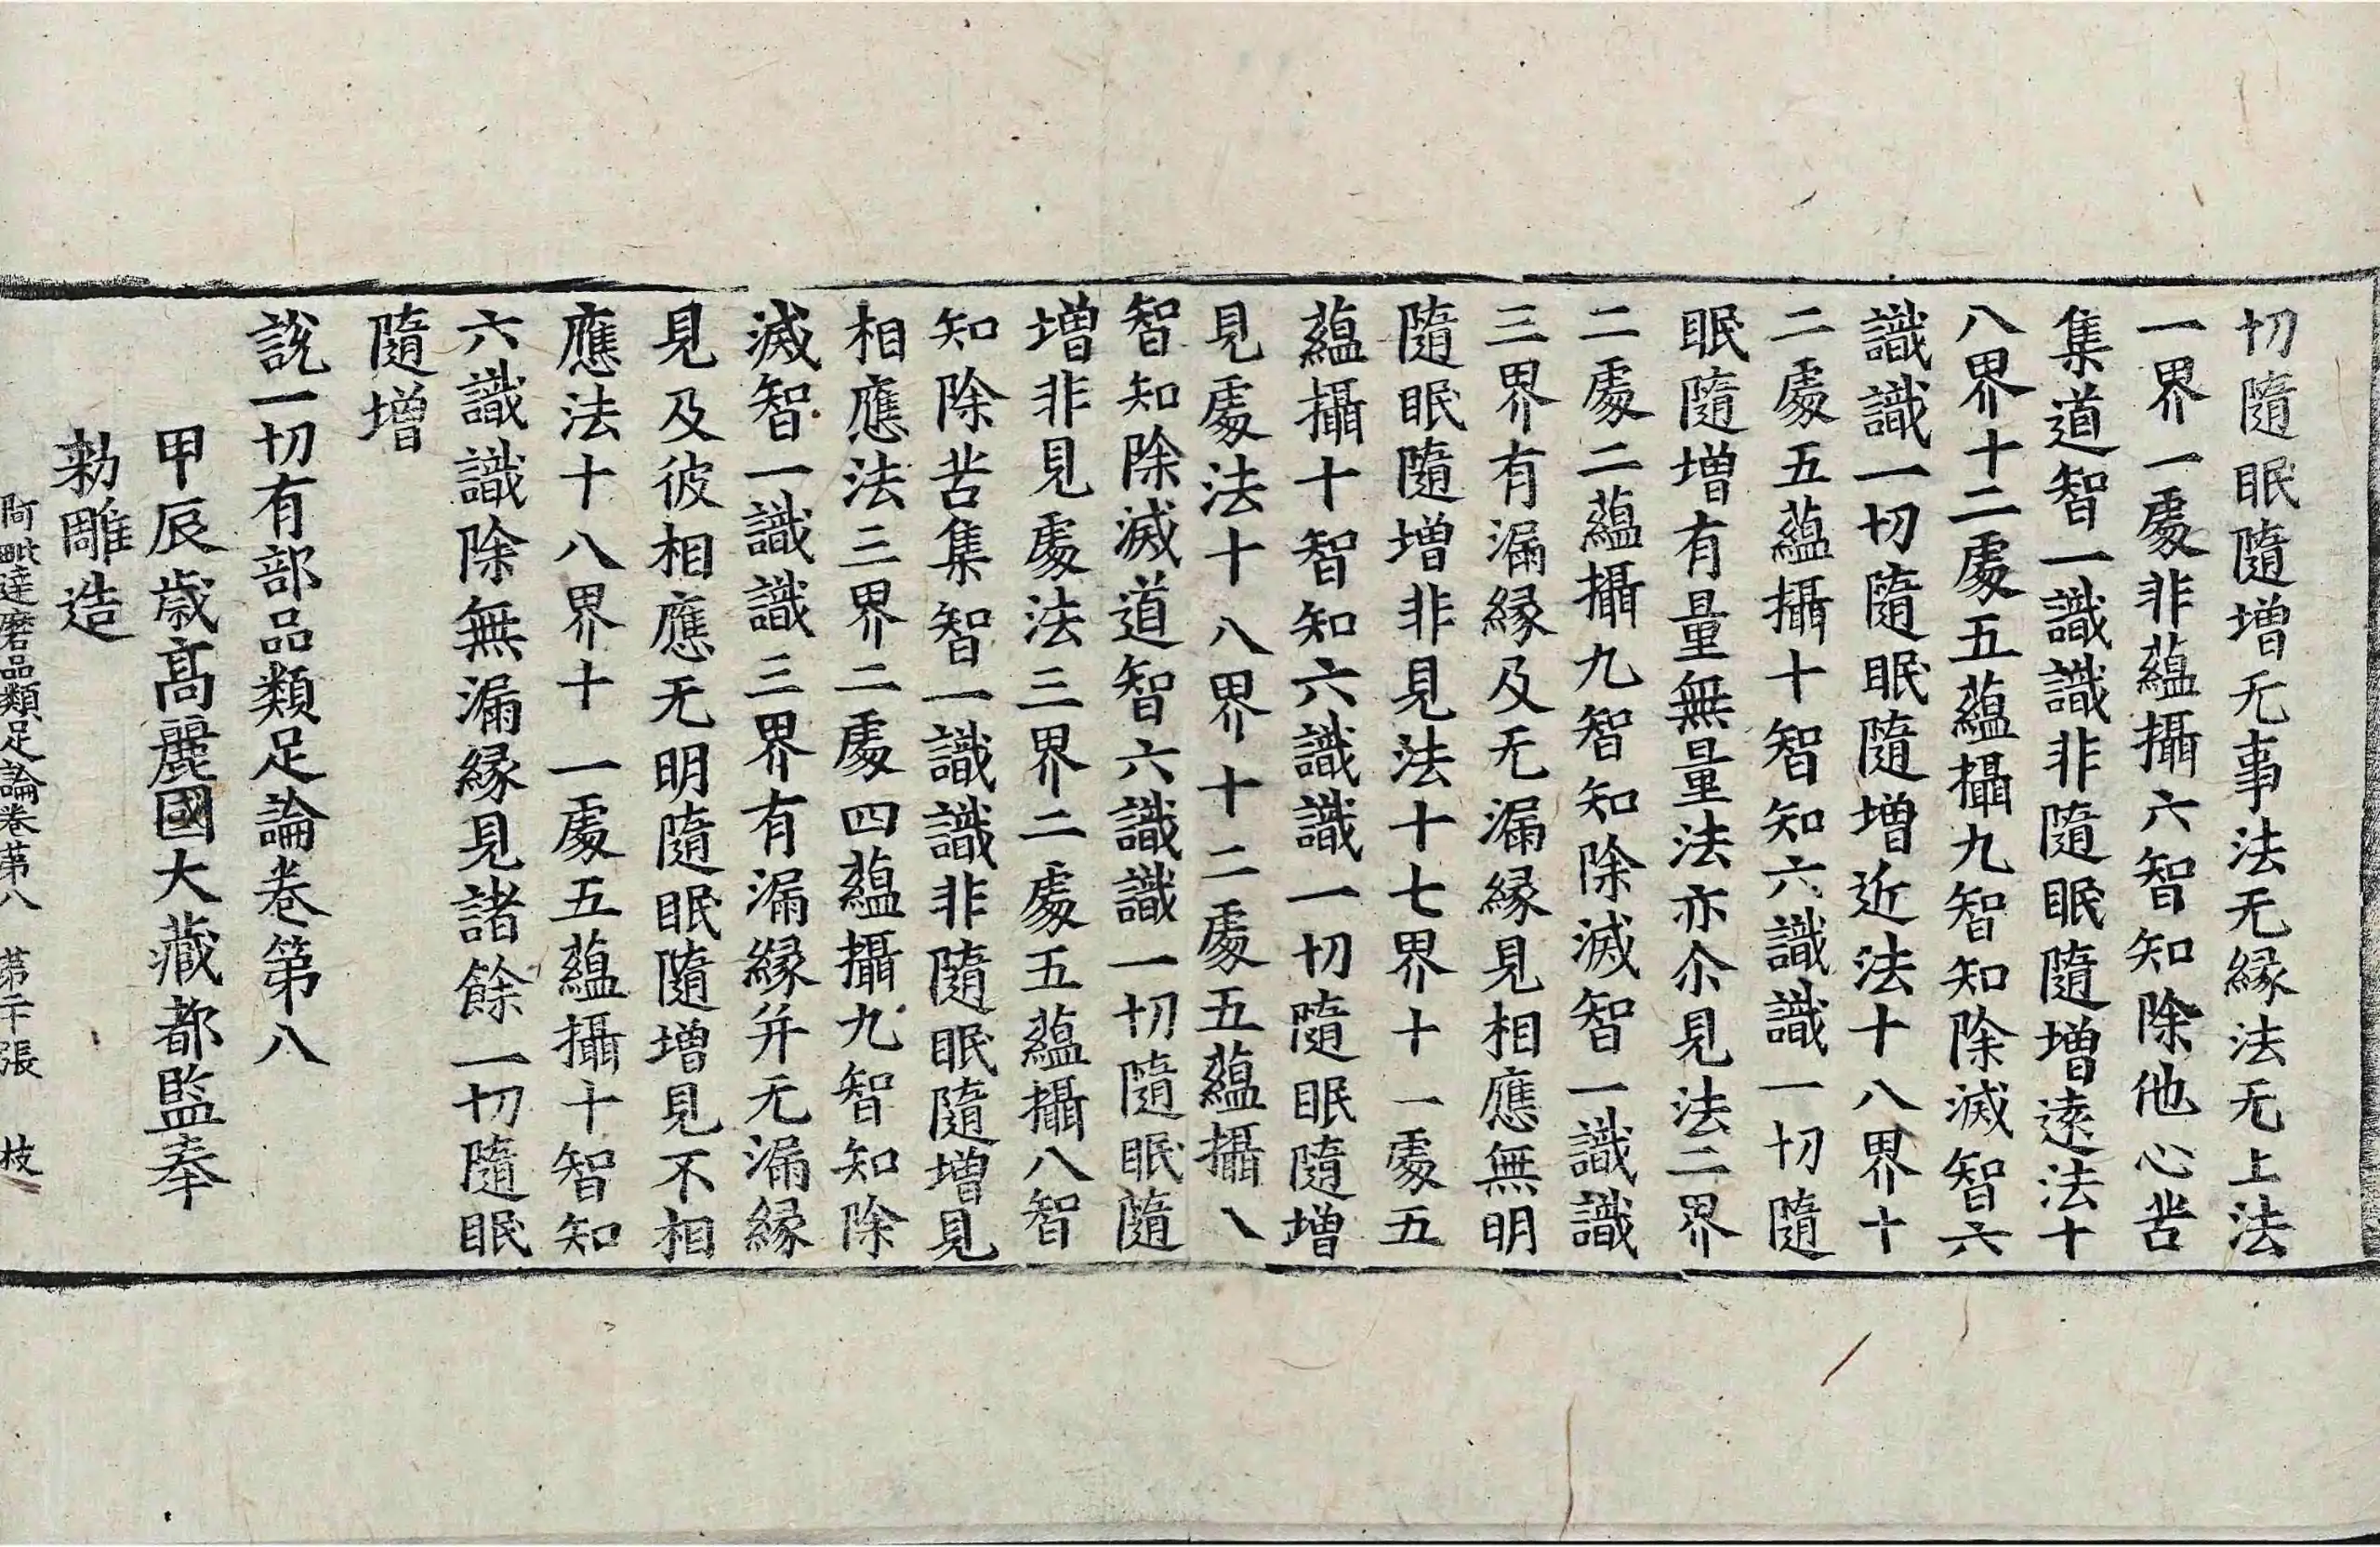 切隨眠隨增无事法无縁法无上法
一界一處非蘊攝六智知除他心苦
集道智一識識非隨眠隨增遠法十
八界十二處五蘊攝九智知除滅智六
識識一切隨眠隨增近法十八界十
二處五蘊攝十智知六識識一切隨
眠隨增有量無量法亦尒見法二界
二處二蘊攝九智知除滅智一識識
三界有漏縁及无漏縁見相應無明
隨眠隨增非見法十七界十一處五
蘊攝十智知六識識一切隨眠隨增
見處法十八界十二處五蘊攝八
智知除滅道智六識識一切隨眠隨
增非見處法三界二處五蘊攝八智
知除苦集智一識識非隨眠隨增見
相應法三界二處四蘊攝九智知除
滅智一識識三界有漏縁并无漏縁
見及彼相應无明隨眠隨增見不相
應法十八界十一處五蘊攝十智知
六識識除無漏縁見諸餘一切隨眠
隨增
說一切有部品類足論卷第八
甲辰歲高麗國大藏都監奉
勅雕造
阿毗達磨品類足論卷苐八 苐二十張 枝